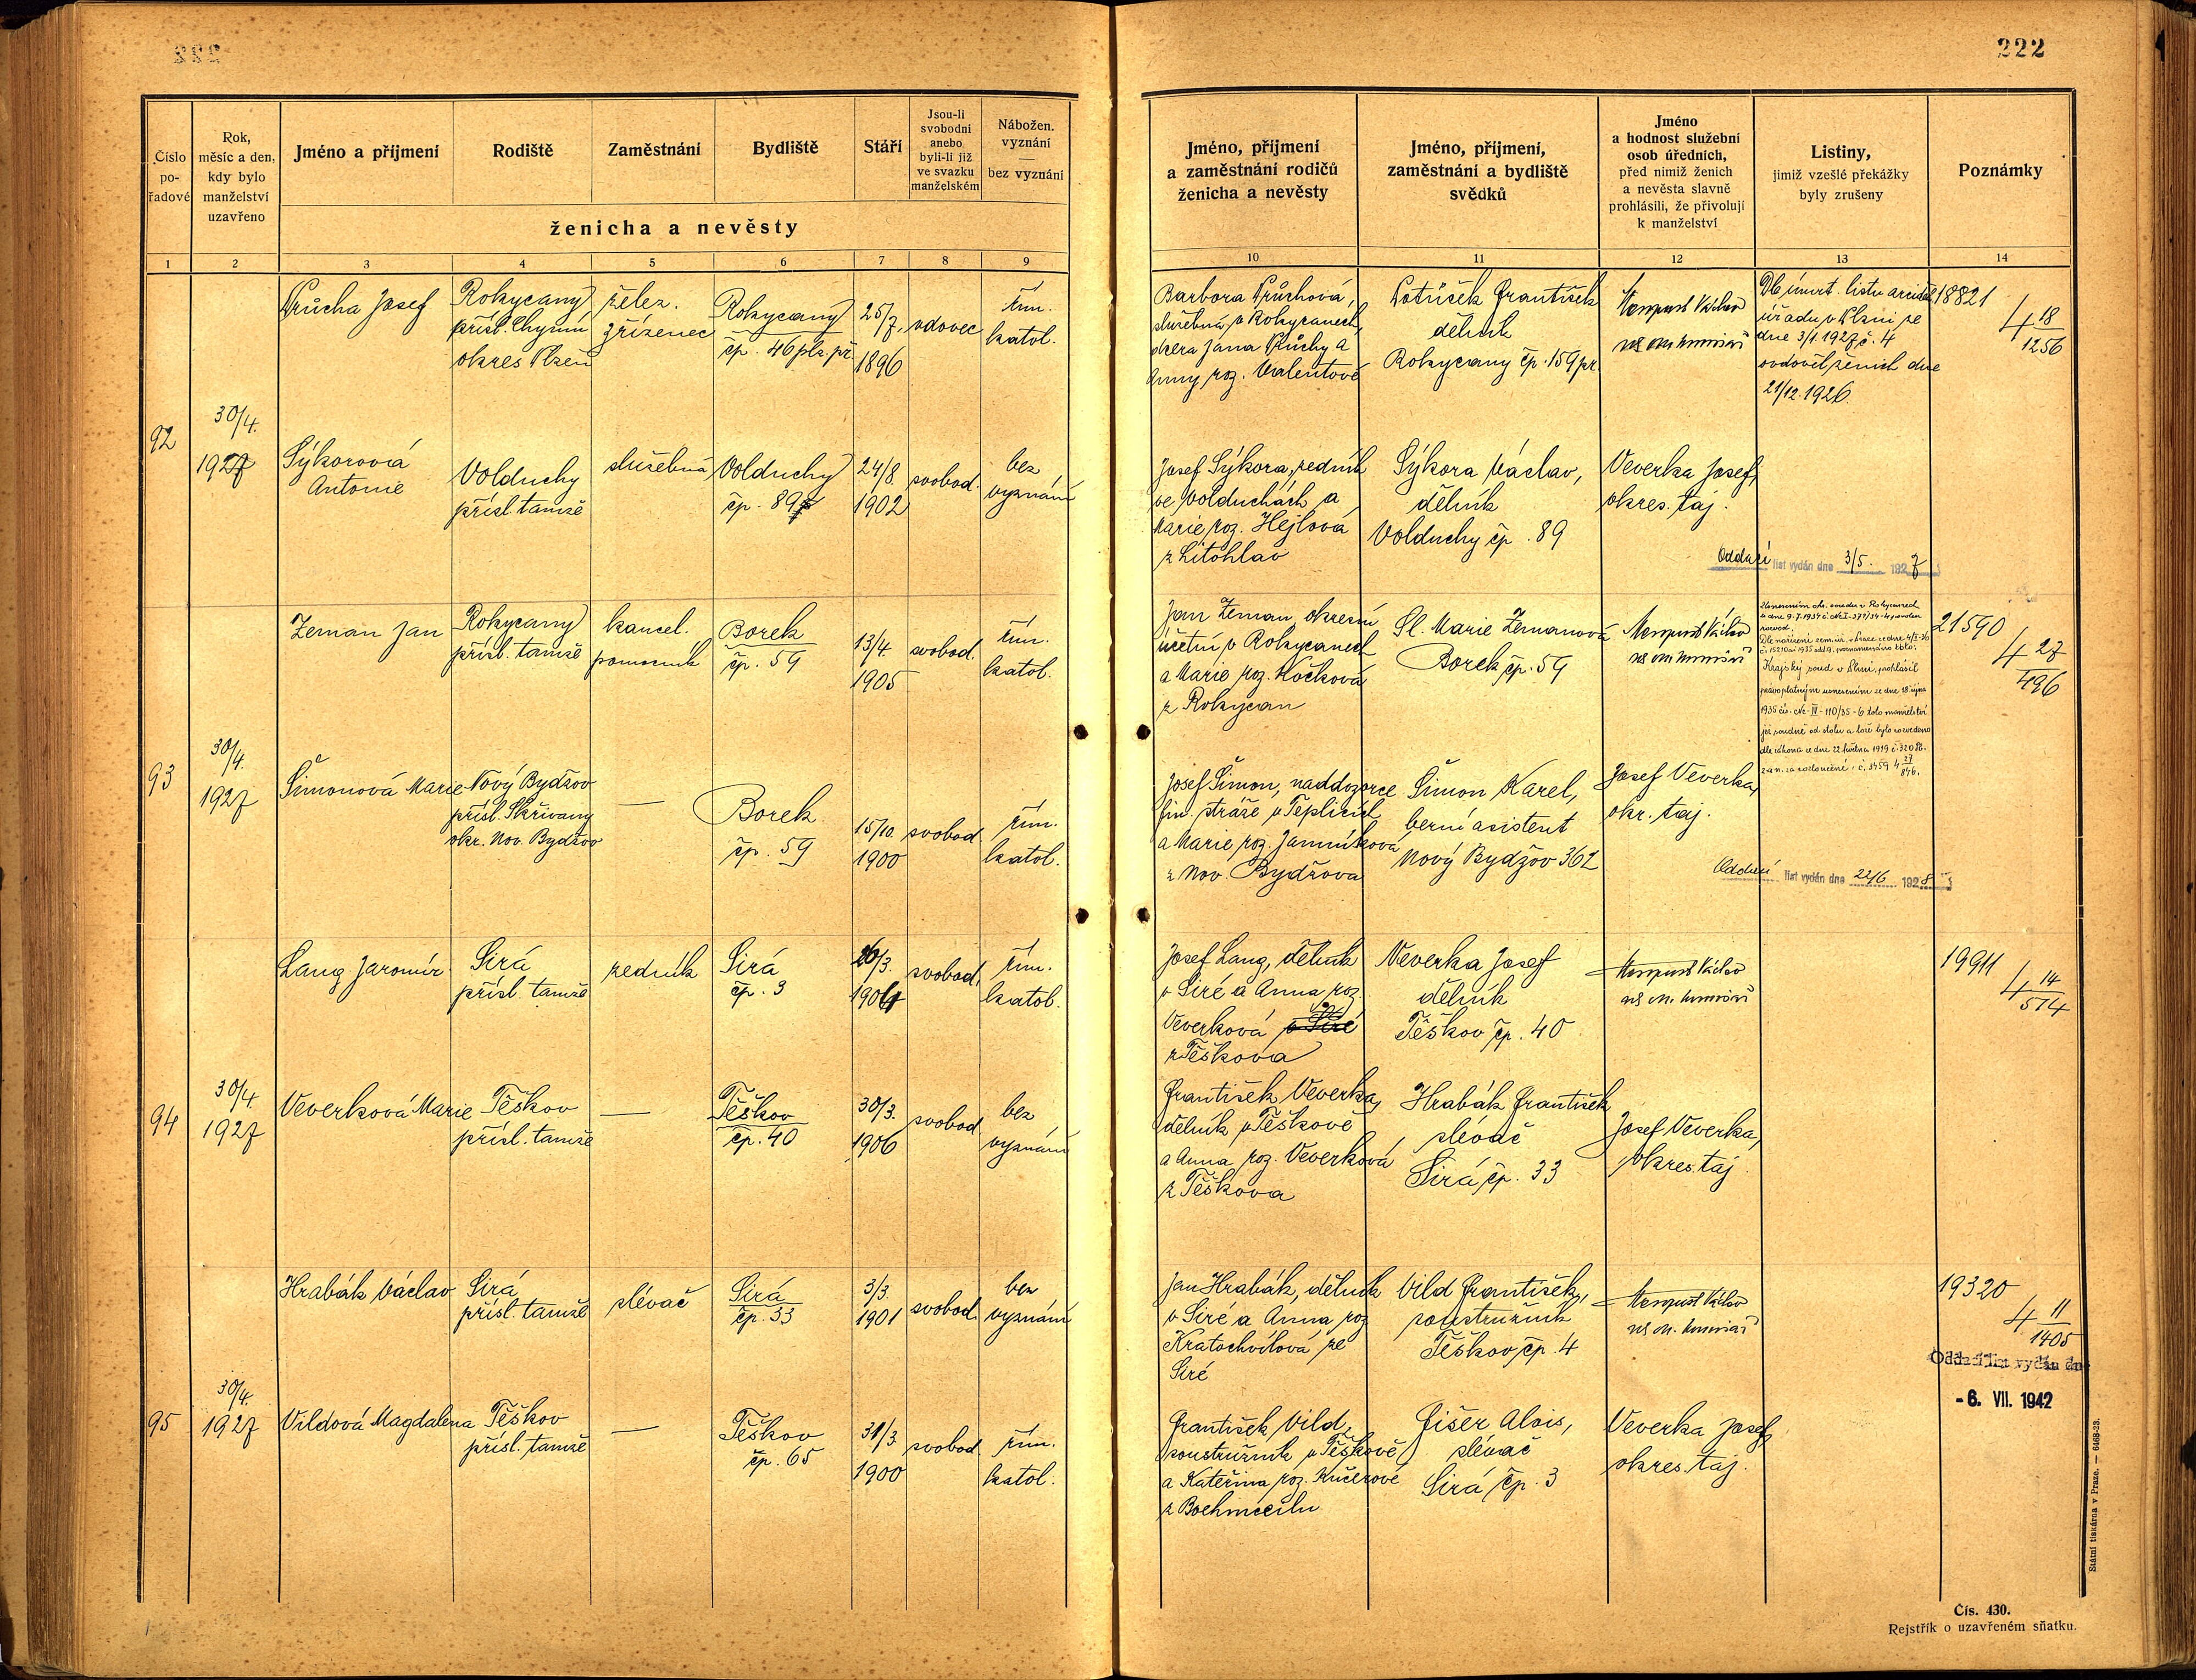 222
Číslo
po-
řadové
Rok,
měsíc a den,
kdy bylo
manželství
uzavřeno
Jméno a příjmení
Rodiště
Zaměstnání
Bydliště
Stáří
Jsou-li
svobodni
anebo
byli-li již
ve svazku
manželském
Nábožen.
vyznání
—
bez vyznání
ženicha a nevěsty
1 2 3 4 5 6 7 8 9
Průcha Josef
Rokycany
přísl. Chyniň
okres Plzeň
želez.
zřízenec
Rokycany
čp. 46 plz. př.
25/7.
1896
vdovec
řím.
katol.
92
30/4.
1927
Sýkorová
Antonie
Volduchy
přísl. tamže
služebná
Volduchy
čp. 89
24/8.
1902
svobod.
bez
vyznání
Zeman Jan
Rokycany
přísl. tamže
kancel.
pomocník
Borek
čp. 59
13/4.
1905
svobod.
řím.
katol.
93
30/4.
1927
Šimonová Marie
Nový Bydžov
přísl. Skřivany
okr. Nov. Bydžov
—
Borek
čp. 59
15/10.
1900
svobod.
řím.
katol.
Lang Jaromír
Sirá
přísl. tamže
zedník
Sirá
čp. 3
26/3.
1904
svobod.
řím.
katol.
94
30/4.
1927
Veverková Marie
Těškov
přísl. tamže
—
Těškov
čp. 40
30/3.
1906
svobod
bez
vyznání
Hrabák Václav
Sirá
přísl. tamže
slévač
Sirá
čp. 33
3/3.
1901
svobod.
bez
vyznání
95
30/4.
1927
Vildová Magdalena
Těškov
přísl. tamže
—
Těškov
čp. 65
31/3.
1900
svobod
řím.
katol.
222
Jméno, příjmení
a zaměstnání rodičů
ženicha a nevěsty
Jméno, příjmení,
zaměstnání a bydliště
svědků
Jméno
a hodnost služební
osob úředních,
před nimiž ženich
a nevěsta slavně
prohlásili, že přivolují
k manželství
Listiny,
jimiž vzešlé překážky
byly zrušeny
Poznámky
10 11 12 13 14
Barbora Průchová,
služebná v Rokycanech,
dcera Jana Průchy a
Anny roz. Valentové
František
dělník
Rokycany čp. 159 pr.
Václav
Dle úmrt. listu
úřadu v Plzni ze
dne 3/1. 1927 č. 4
ovdověl ženich dne
21/12. 1926.
18821
4 18
1256
Josef Sýkora, zedník
ve Volduchách a
Marie roz. Hejlová
z Litohlav
Sýkora Václav,
dělník
Volduchy čp. 89
Veverka Josef,
okres. taj.
Oddací list vydán dne 3/5. 1927
Jan Zeman, okresní
účetní v Rokycanech
a Marie roz. Kočková
z Rokycan
Sl. Marie Zemanová
Borek čp. 59
Václav
Krajský soud v Plzni, prohlásil
pravoplatným usnesením ze dne 18. října
1935 čís. Nc-IV-110/35-6 toto manželství
již soudně od stolu a lože bylo rozvedeno
dle zákona ze dne 22. května 1919 č. 320 Sb.
z. a n. za rozloučené. č. 3459 4 27
846.
21590
4 27
496
Josef Šimon, naddozorce
fin. stráže v Teplicích
a Marie roz.
z Nov. Bydžova
Šimon Karel,
berní asistent
Nový Bydžov 362
Josef Veverka,
okr. taj.
Oddací list vydán dne 22/6 1928
Josef Lang, dělník
v Siré a Anna roz.
Veverková v Siré
z Těškova
Veverka Josef
dělník
Těškov čp. 40
Václav
19911
4 14
574
František Veverka,
dělník v Těškově
a Anna roz. Veverková
z Těškova
Hrabák František
slévač
Sirá čp. 33
Josef Veverka,
okres. taj.
Jan Hrabák, dělník
v Siré a Anna roz.
Kratochvílová ze
Siré
Vild František,
soustružník
Těškov čp. 4
Václav
19320
4 11
1405
Oddací list vydán dne
- 6. VII. 1942
František Vild,
soustružník v Těškově
a Kateřina roz. Kučerové
Fišer Alois,
slévač
Sirá čp. 3
Veverka Josef,
okres. taj.
Státní tiskárna v Praze. — 6468-23.
Čís. 430.
Rejstřík o uzavřeném sňatku.